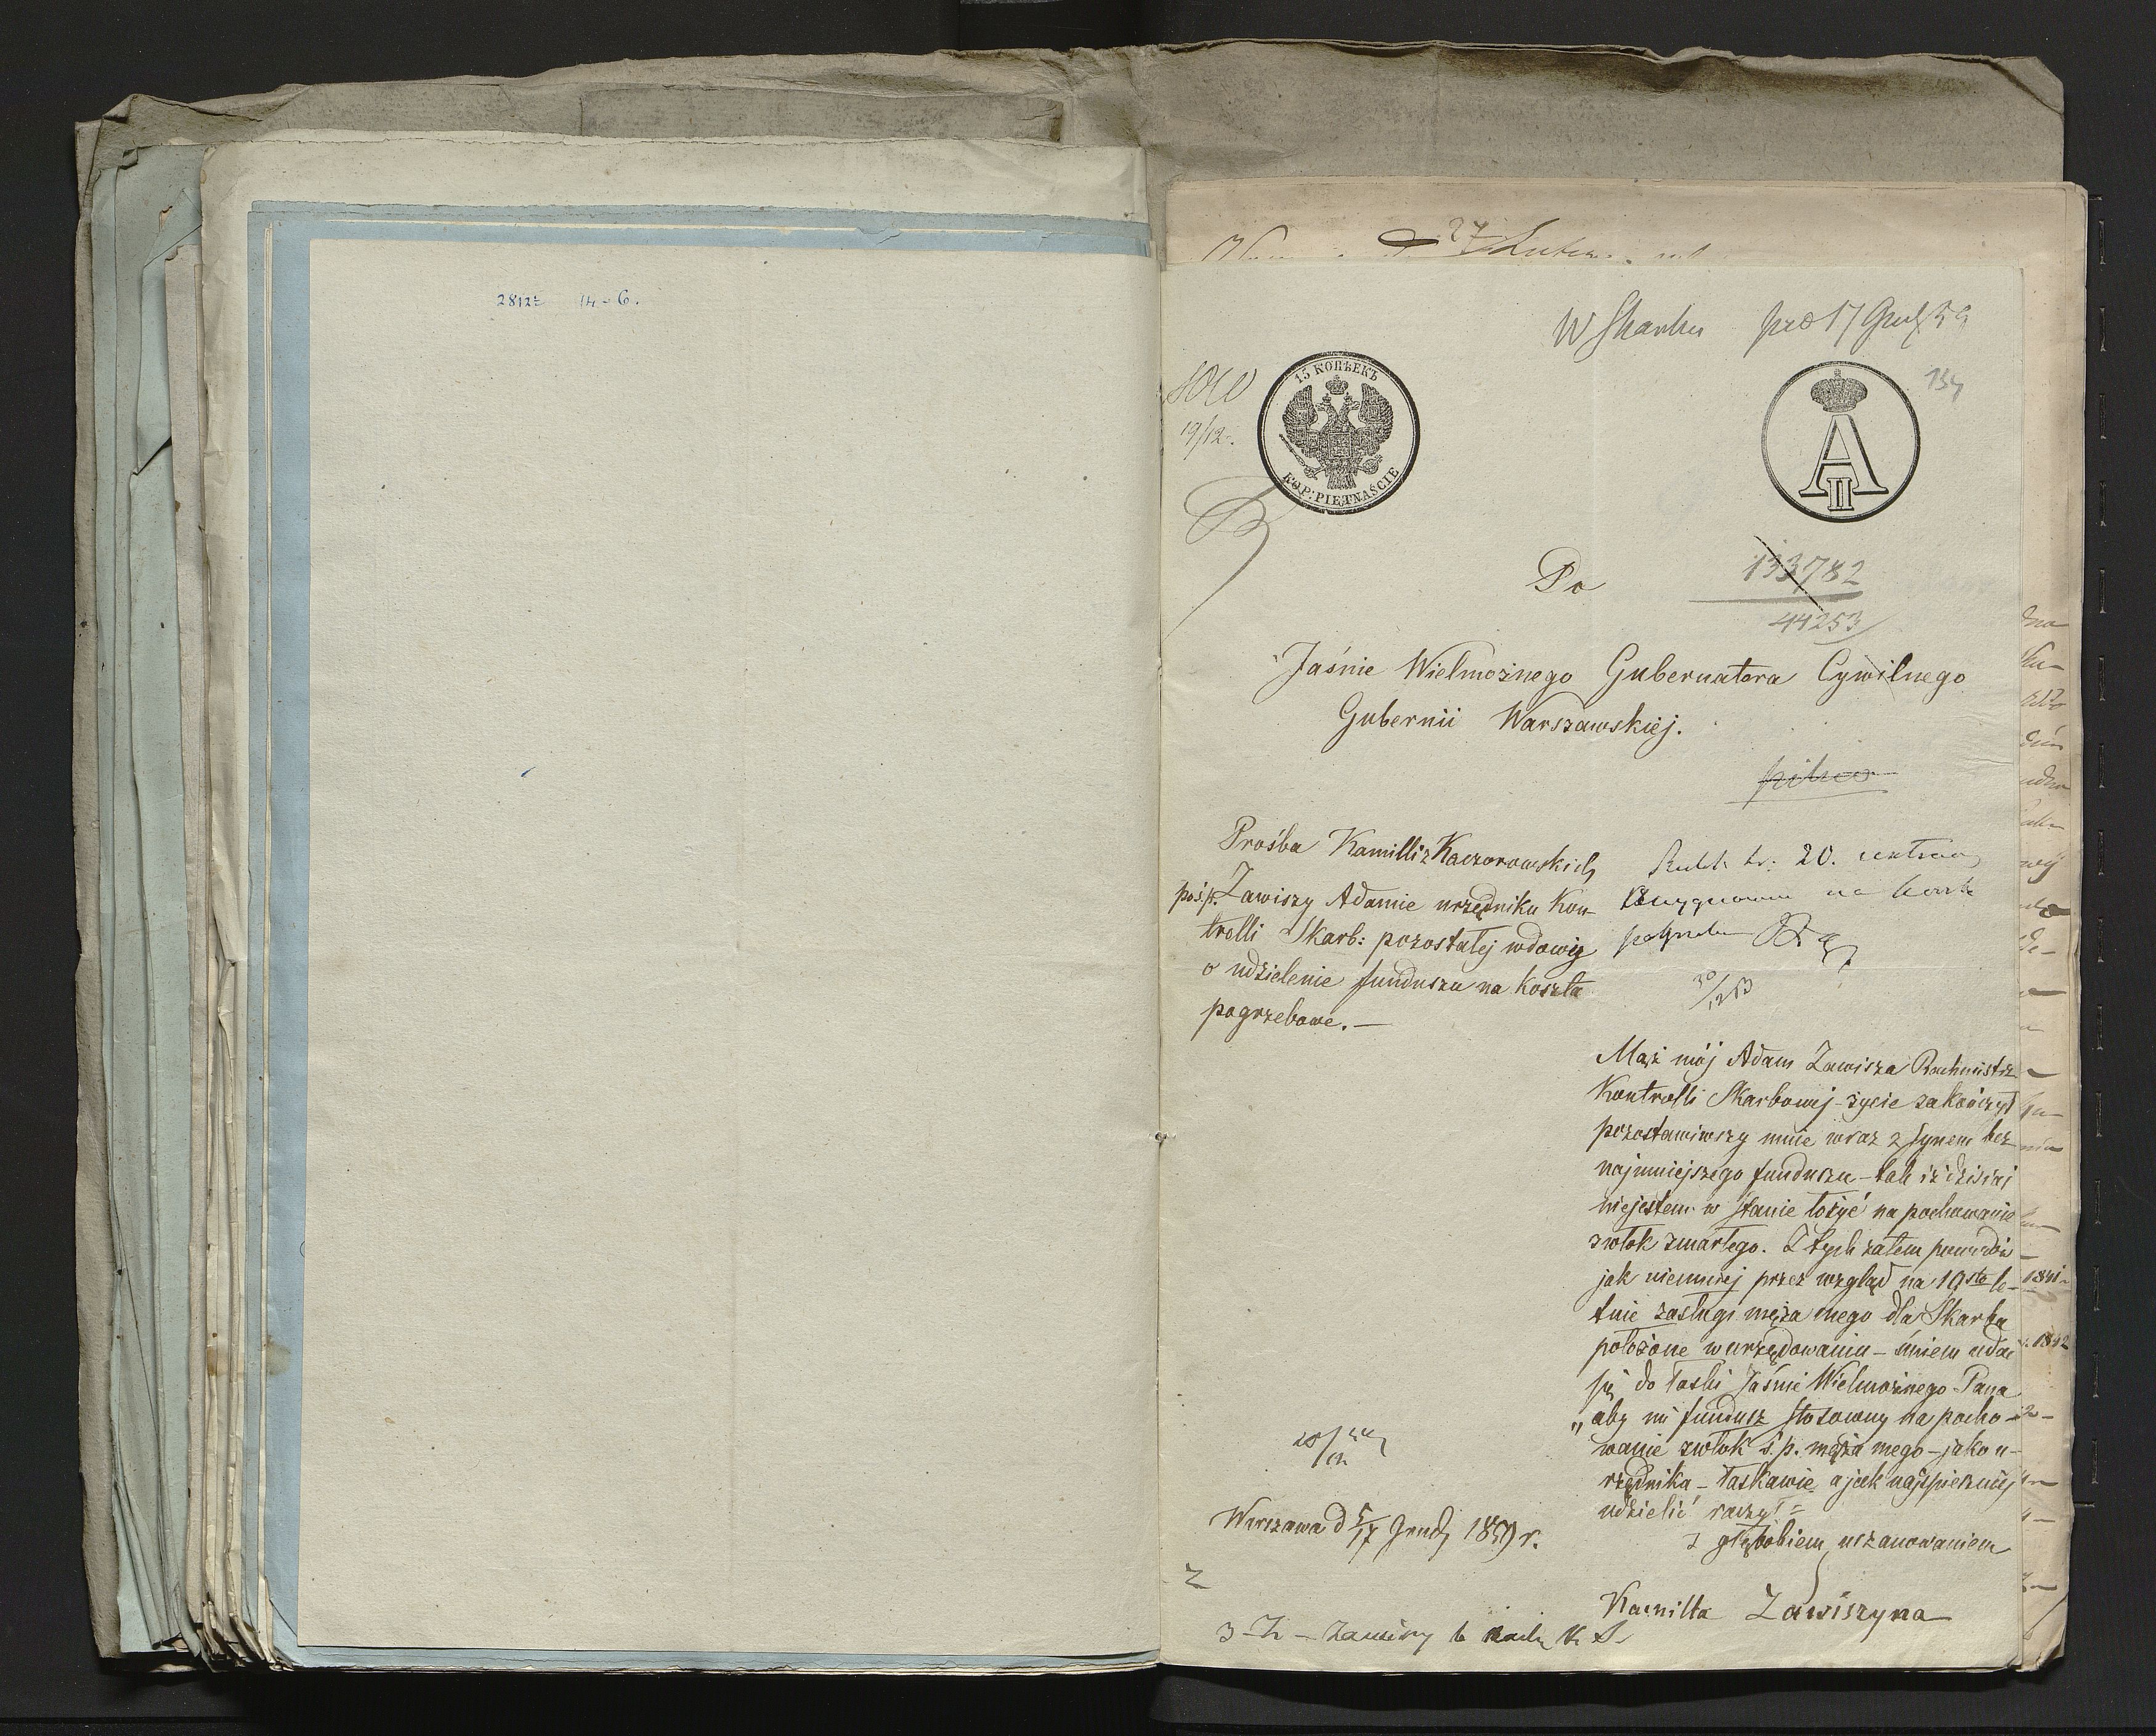 28122 14-6.
27
W Skarbu pro 17 Grud 59
134
19/12.
15 КОПѢЕКЪ
KOP: PIĘTNAŚCIE
A II
Do
133782
44253
Jaśnie Wielmożnego Gubernatora Cywilnego
Gubernii Warszawskiej.
Prośba Kamilli z Kaczorowskich
po ś.p. Zawiszy Adamie urzędniku Kon-
trolli Skarb: pozostałej wdowy
o udzielenie funduszu na koszta
pogrzebowe.—
20.
na koszta
pogrzebu
Mąż mój Adam Zawisza Rachmistrz
Kontrolli Skarbowej - życie zakończył
pozostawiwszy mnie wraz z synem bez
najmniejszego funduszu - tak iż dzisiaj
niejestem w stanie łożyć na pochowanie
zwłok zmarłego. Z tych zatem powodów
jak niemniej przez wzgląd na 19sto le-
tnie zasługi męża mego dla Skarbu
położone w urzędowaniu - śmiem udać
się do łaski Jaśnie Wielmożnego Pana
„aby mi fundusz stosowny na pocho-
wanie zwłok ś.p. męża mego - jako u-
rzędnika - łaskawie a jak najspieszniej
udzielić raczył =
z głębokiem uszanowaniem
Kamilla Zawiszyna
Warszawa d 5/17 Grud 1859 r.
1841
1842